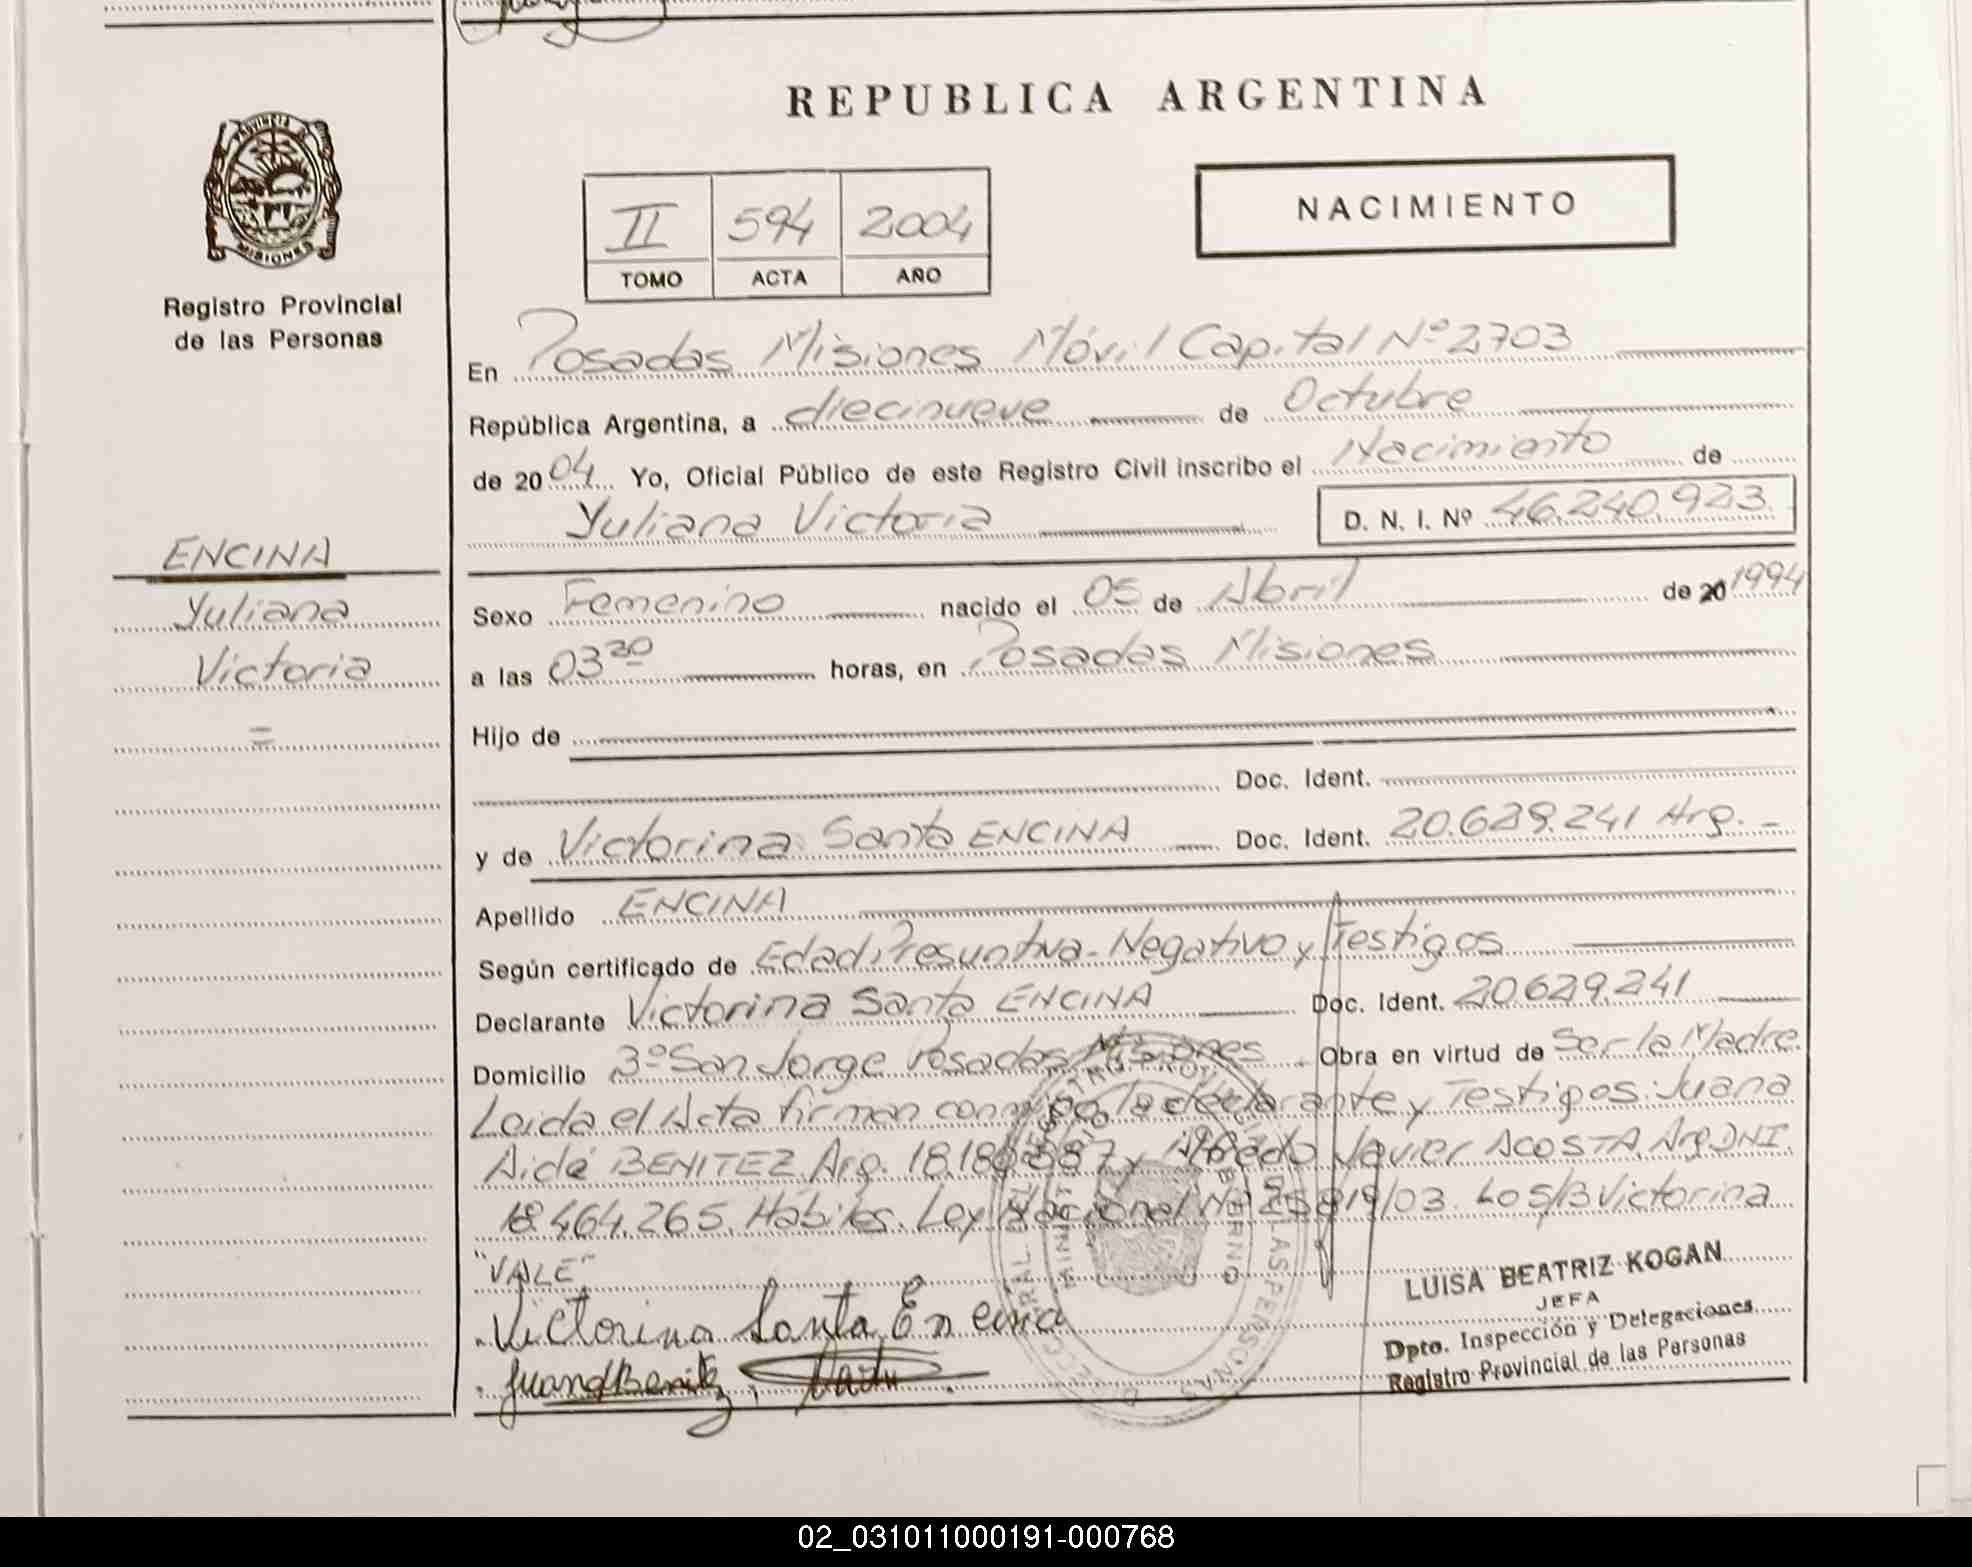 REPUBLICA ARGENTINA
PROVINCIA DE MISIONES
Registro Provincial
de las Personas
II 594 2004
TOMO ACTA AÑO
NACIMIENTO
En Posadas Misiones Móvil Capital Nº 2703
República Argentina, a diecinueve de Octubre
de 2004 Yo, Oficial Público de este Registro Civil inscribo el Nacimiento de
Yuliana Victoria D. N. I. Nº 46.240.923.
ENCINA
Yuliana
Victoria
=
Sexo Femenino nacido el 05 de Abril de 20 1994
a las 03 20 horas, en Posadas Misiones
Hijo de
Doc. Ident.
y de Victorina Santa ENCINA Doc. Ident. 20.629.241 Arg. -
Apellido ENCINA
Según certificado de Edad Presuntiva - Negativo y Testigos
Declarante Victorina Santa ENCINA Doc. Ident. 20.629.241
Domicilio 3º San Jorge Posadas Misiones Obra en virtud de Ser la Madre.
Leida el Acta firman conmigo la declarante y Testigos: Juana
Aidé BENITEZ Arg. Javier ACOSTA Arg DNI.
18.464.265. Hábiles. Ley Nacional Nº 25819/03. Lo S/B Victorina
"VALE"
Victorina Santa Encina
Juana Benitez
LUISA BEATRIZ KOGAN
JEFA
Dpto. Inspección y Delegaciones
Registro Provincial de las Personas
02_031011000191-000768